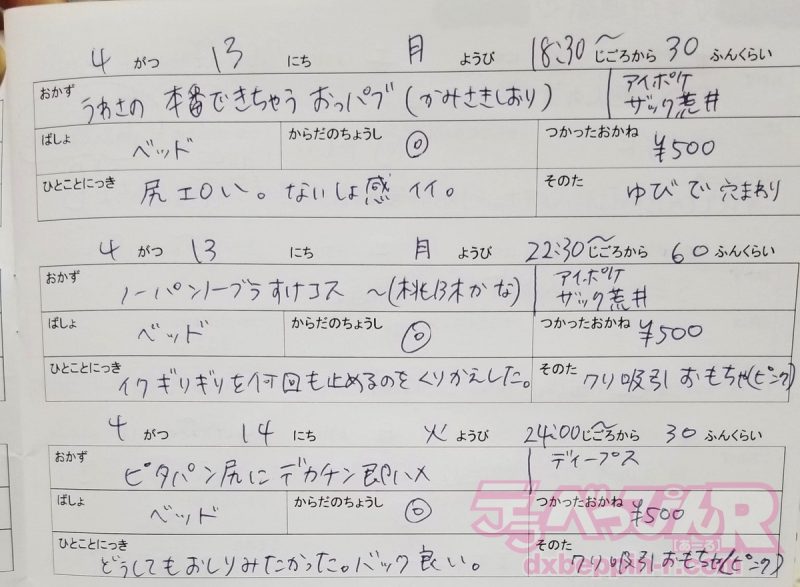 4 がつ 13 にち 月 ようび 18:30〜じごろから 30 ふんくらい
おかず うわさの 本番できちゃう おっパブ(かみさきしおり) アイポケ
ザック荒井
ばしょ ベッド からだのちょうし ◎ つかったおかね ¥500
ひとことにっき 尻エロい。ないしょ感イイ。 そのた ゆびで穴まわり
4 がつ 13 にち 月 ようび 22:30〜じごろから 60 ふんくらい
おかず ノーパンノーブラすけコス 〜(桃乃木かな) アイポケ
ザック荒井
ばしょ ベッド からだのちょうし ◎ つかったおかね ¥500
ひとことにっき イクギリギリを何回も止めるのをくりかえした。 そのた クリ吸引おもちゃ(ピンク)
4 がつ 14 にち 火 ようび 24:00〜じごろから 30 ふんくらい
おかず ピタパン尻にデカチン即ハメ ディープス
ばしょ ベッド からだのちょうし ◎ つかったおかね ¥500
ひとことにっき どうしてもおしりみたかった。バック良い。 そのた クリ吸引おもちゃ(ピンク)
デラべっぴんR
[あーる]
dxbeppin-r.com